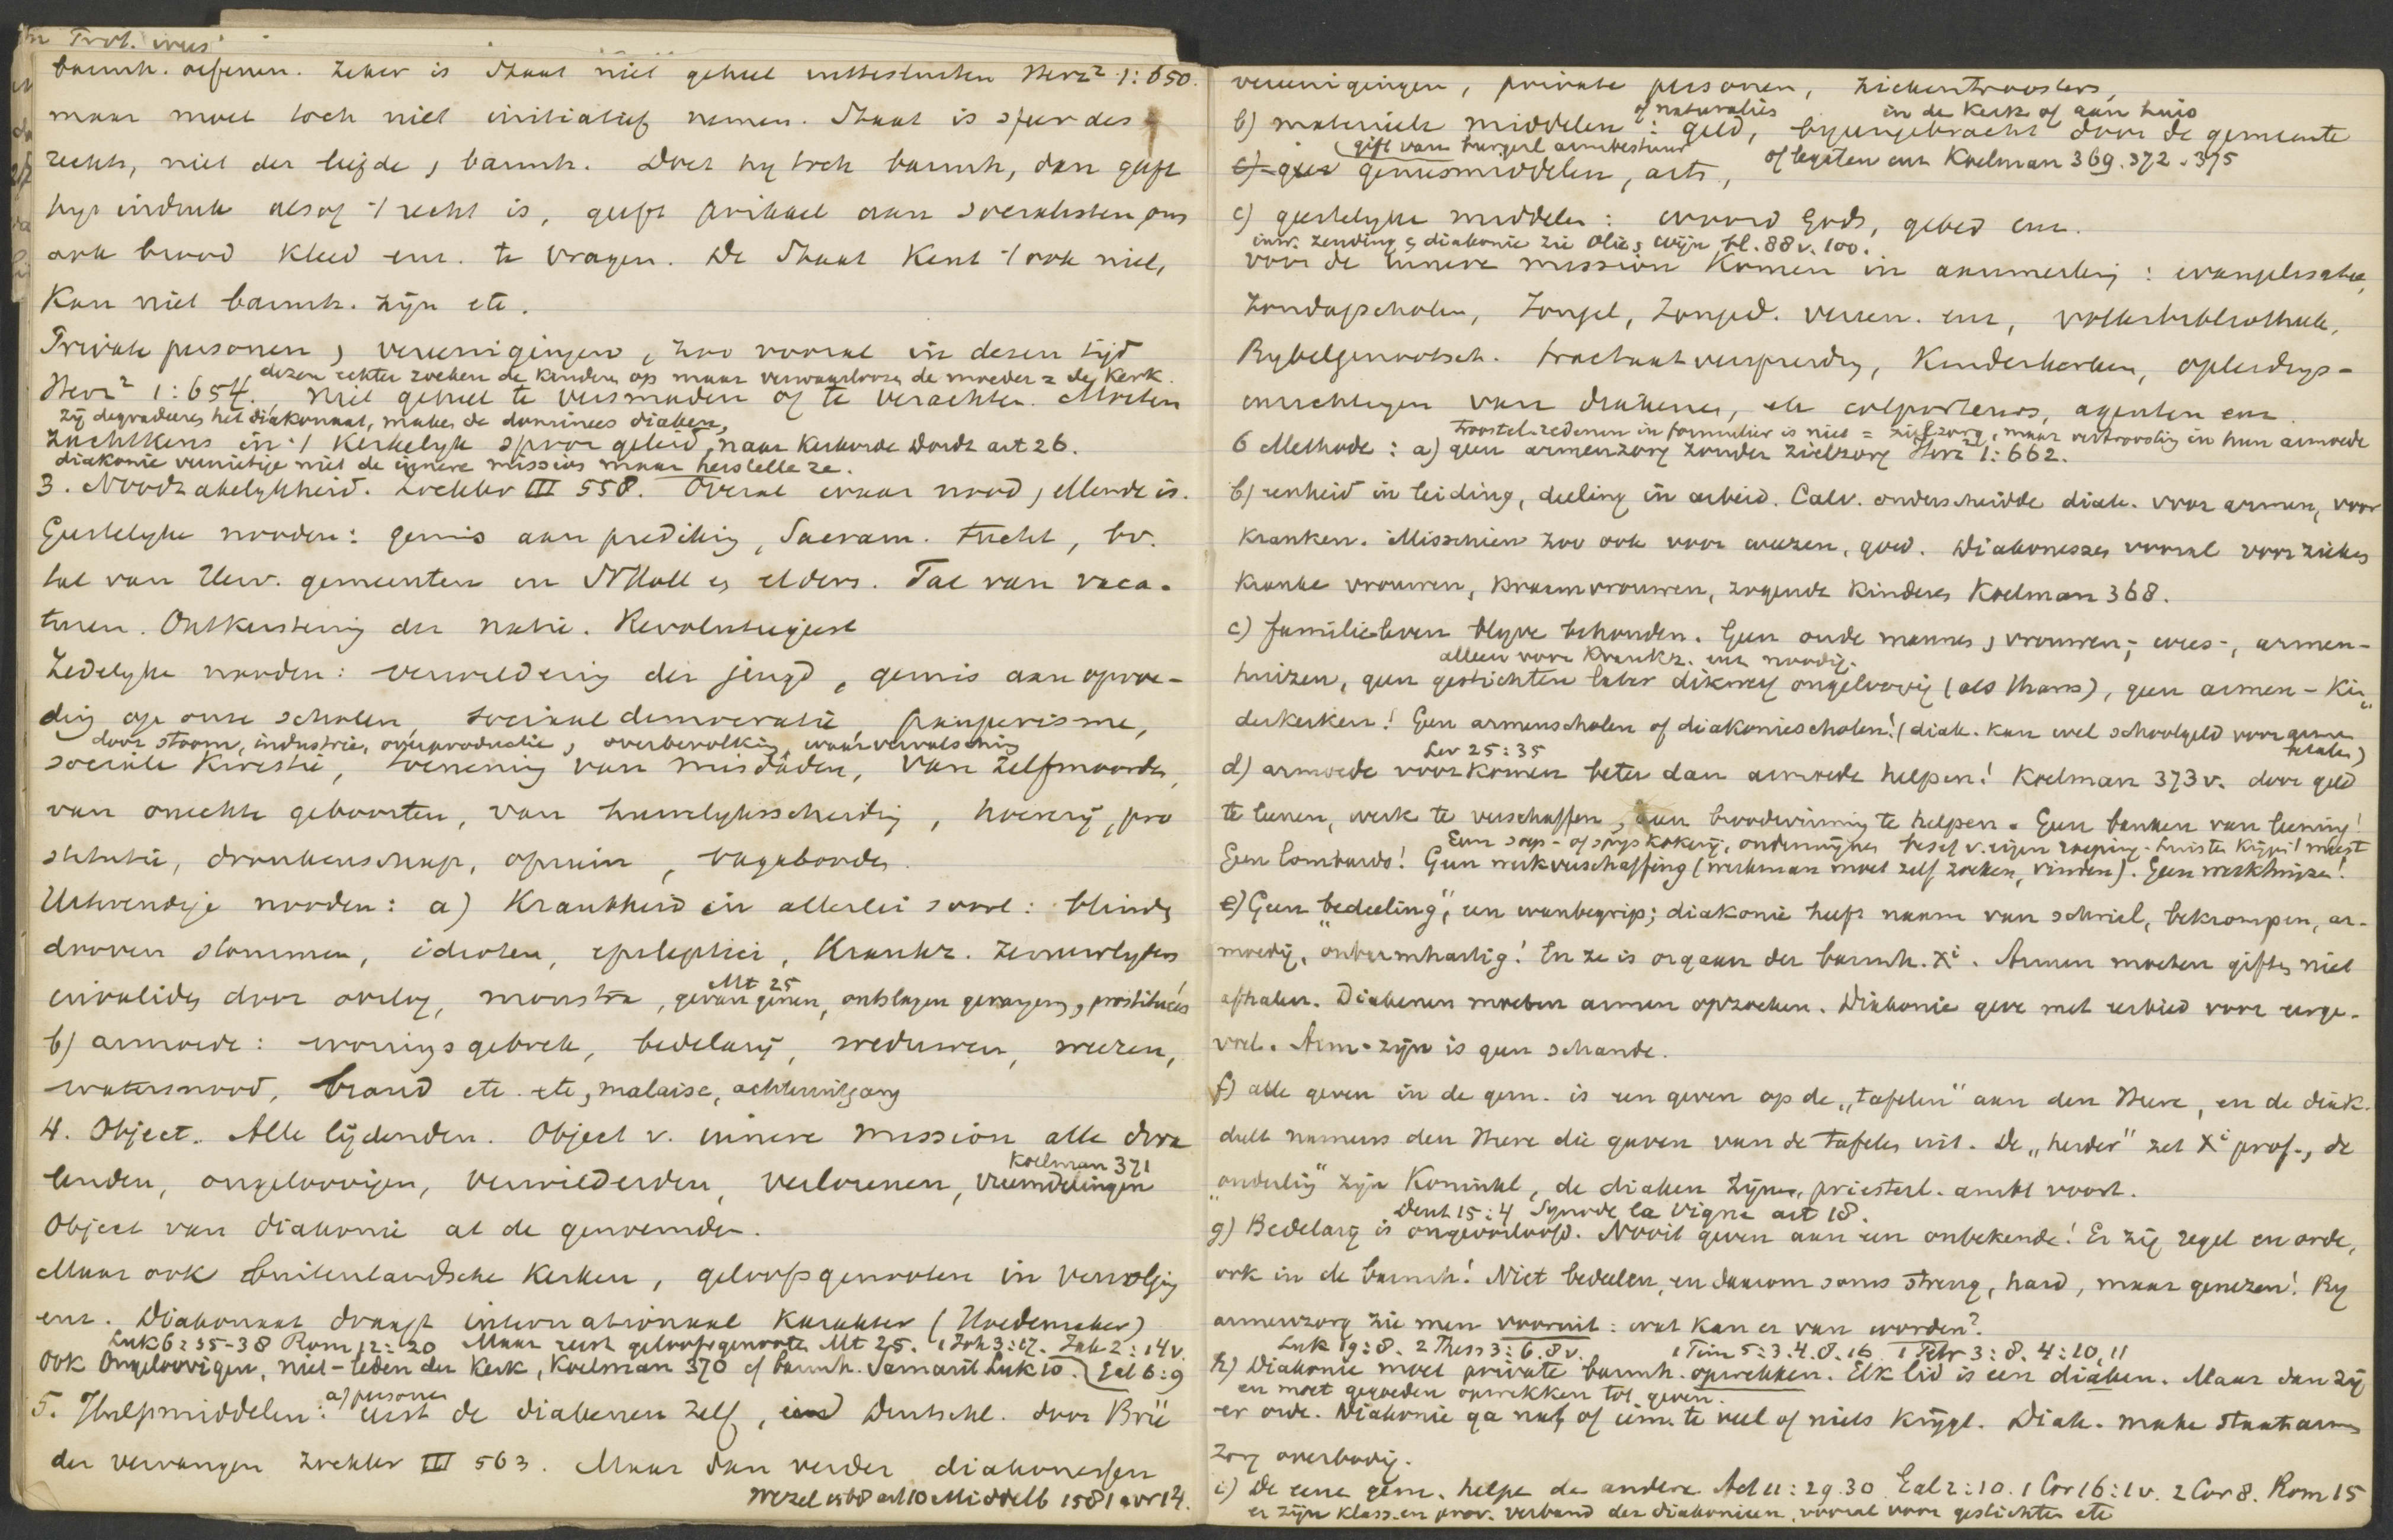 barmh. oefenen. Zeker is Staat niet geheel uittesluiten Herz² 1:650.
maar moet toch niet initiatief nemen. Staat is sfeer des
rechts, niet der liefde, barmh. Doet hij toch barmh, dan geeft
hij indruk alsof 't recht is, geeft prikkel aan socialisten om
ook brood kleed enz. te vragen. De Staat kent 't ook niet,
kan niet barmh. zijn etc.
Private personen, vereenigingen, zoo vooral in dezen tijd
dezen echter zoeken de kinderen op maar verwaarloozen de moeder = de Kerk.
Herz² 1:654. Niet geheel te versmaden of te verachten. Moeten
zij degradeeren het diakonaat, maken de dominees diaken,
zachtkens in 't kerkelijk spoor geleid, naar Kerkorde Dordt art 26.
diakonie vernietige niet de innere mission maar herstelle ze.
3. Noodzakelijkheid. Zöckler III 558. Overal waar nood, ellende is.
Geestelijke nooden: gemis aan prediking, Sacram. tucht, bv.
tal van Herv. gemeenten in NHoll en elders. Tal van vaca-
turen. Ontkerstening der natie. Revolutiegeest
Zedelijke nooden: verwildering der jeugd, gemis aan opvoe-
ding op onze scholen, sociaal democratie pauperisme,
door stoom, industrie, overproductie, overbevolking, waarvervalsching
sociale kwestie, toeneming van misdaden, van zelfmoorden,
van onechte geboorten, van huwelijksscheiding, hoererij, pro
stitutie, dronkenschap, opium, vagebonden.
Uitwendige nooden: a) Krankheid in allerlei soort: blinden
dooven stommen, idioten, epileptici, Krankz. zenuwlijders
Mt 25
invaliden door oorlog, monstra, gevangenen, ontslagen gevangenen, prostituées
b) armoede: woningsgebrek, bedelarij, weduwen, weezen,
watersnood, brand etc. etc, malaise, achteruitgang
4. Object. Alle lijdenden. Object v. innere mission alle dwa
Koelman 371
lenden, ongeloovigen, verwilderden, verlorenen, vreemdelingen
Object van diakonie al de genoemden.
Maar ook buitenlandsche kerken, geloofsgenooten in vervolging
enz. Diakonaat draagt internationaal karakter (Hoedemaker)
Luk 6:35-38 Rom 12:20 Maar eerst geloofsgenooten Mt 25. 1 Joh 3:17. Jak 2:14v.
Ook Ongeloovigen, niet-leden der Kerk, Koelman 370 cf barmh. Samarit Luk 10. Gal 6:9
a) personen
5. Hulpmiddelen: eerst de diakenen zelf, in Deutschl. door Brü
der vervangen Zöckler III 563. Maar dan verder diakonessen
Wezel 1568 art 10 Middelb 1581 art 14.
vereenigingen, private personen, ziekentroosters,
of naturaliën in de Kerk of aan huis
b) materieele middelen: geld, bijeengebracht door de gemeente
(gift van burgerl armbestuur of legaten enz Koelman 369. 372. 375
geneesmiddelen, arts,
c) geestelijke middelen: woord Gods, gebed enz.
inw. zending & diakonie zie Olie & wijn bl. 88 v. 100.
voor de innere mission komen in aanmerking: evangelisatie,
Zondagscholen, Jongel, Jonged. vereen. enz, volksbibliotheek,
Bijbelgenootsch. tractaatverspreiding, Kinderkerken, opleidings-
inrichtingen van diakenen, colporteurs, agenten enz.
troostel. redenen in formulier is niet = zielzorg, maar vertroosting in hun armoede
6 Methode: a) geen armenzorg zonder zielzorg Herz² 1:662.
b) eenheid in leiding, deeling in arbeid. Calv. onderscheidde diak. voor armen, voor
kranken. Misschien zoo ook voor weezen, goed. Diakonessen vooral voor zieken
kranke vrouwen, kraamvrouwen, zogende kinderen Koelman 368.
c) familieleven blijve behouden. Geen oude mannen, vrouwen-, wees-, armen-
alleen voor Krankz. enz noodig.
huizen, geen gestichten later dikwerf ongeloovig (als thans), geen armen-Kin-
derkerken! Geen armenscholen of diakoniescholen! (diak. kan wel schoolgeld voor armen
betalen)
Lev 25:35
d) armoede voorkomen beter dan armoede helpen! Koelman 373 v. door geld
te leenen, werk te verschaffen, aan broodwinning te helpen. Geen banken van leening!
Geen soep- of spijskokerij, ondermijnen besef v. eigen roeping. Luiste krijgt 't meest
Geen lombards! Geen werkverschaffing (werkman moet zelf zoeken, vinden). Geen werkhuizen!
e) Geen "bedeeling", een wanbegrip; diakonie heeft naam van schriel, bekrompen, ar-
moedig, "onbarmhartig! En ze is orgaan der barmh. Xi. Armen moeten giften niet
afhalen. Diakenen moeten armen opzoeken. Diakonie geve met eerbied voor eerge-
voel. Arm-zijn is geen schande.
f) alle geven in de gem. is een geven op de "tafelen" aan den Heere, en de diak.
deelt namens den Heere die gaven van de tafelen uit. De "herder" zet Xi prof., de
"ouderling" zijn Koninkl, de diaken zijn priesterl. ambt voort.
Deut 15:4 Synode la Vigne art 18.
g) Bedelarij is ongeoorloofd. Nooit geven aan een onbekende! Er zij regel en orde,
ook in de barmh! Niet bedeelen, en daarom soms streng, hard, maar genezen! Bij
armenzorg zie men vooruit: wat kan er van worden?
Luk 19:8. 2 Thess 3:6.8v. 1 Tim 5:3.4.8.16 1 Petr 3:8. 4:10,11
h) Diakonie moet private barmh. opwekken. Elk lid is een diaken. Maar dan zij
en moet gegoeden opwekken tot geven.
er orde. Diakonie ga na, of iem. te veel of niets krijgt. Diak. make staatsarmen
zorg overbodig.
i) De eene gem. helpe de andere Act 11:29.30 Gal 2:10. 1 Cor 16:1v. 2 Cor 8. Rom 15
er zijn klass. en prov. verband der diakonieen, vooral voor gestichten etc